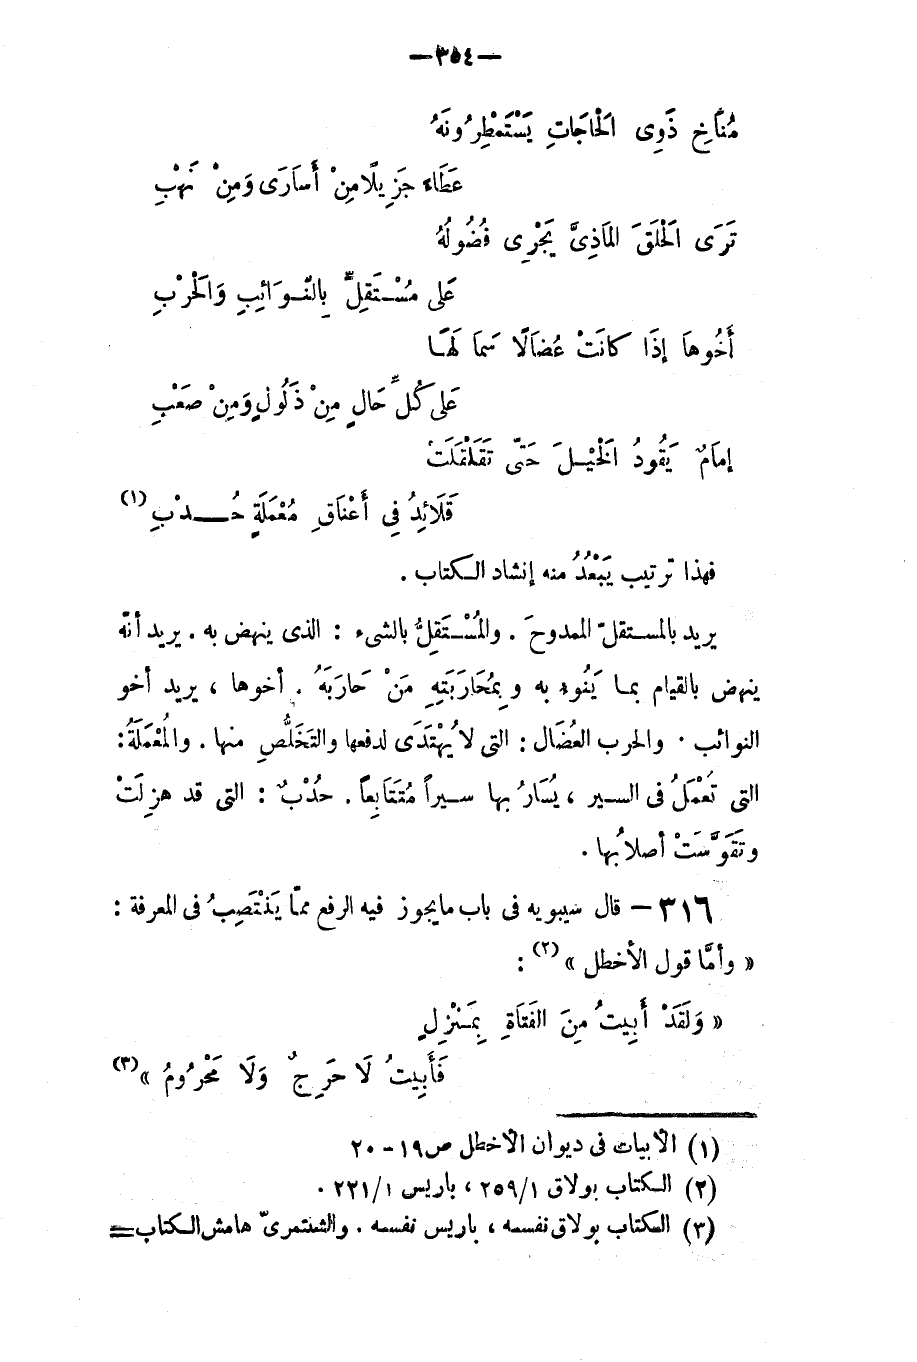 —٣٥٤—
مُنَاخِ ذَوِى الْحَاجَاتِ يَسْتَمْطِرُونَهُ
عَطَاء جَزِيلًا مِنْ أَسَارَى وَمِنْ نَهْبِ
تَرَى الْحَلَقَ المَاذِىَّ يَجْرِى فُضُولُهُ
عَلى مُسْتَقِلٍّ بِالنَّوَائِبِ وَالْحَرْبِ
أَخُوهَا إذَا كانَتْ عُضَالًا سَمَا لَهَا
عَلى كُلِّ حَالٍ مِنْ ذَلُولٍ وَمِنْ صَعْبِ
إمَامٌ يَقُودُ الْخَيْلَ حَتَّى تَقَلْقَلَتْ
قَلَائِدُ فِي أَعْنَاقِ مُعْمَلَةٍ حُدْبِ (١)
فهذا ترتيب يَبْعُدُ منه إنشاد الكتاب .
يريد بالمستقلّ الممدوحَ . والمُسْتَقِلُّ بالشىء : الذى ينهض به . يريد أنّه
ينهض بالقيام بما يَنُوء به وبِمُحَارَبَتِهِ مَنْ حَارَبَهُ . أخوها ، يريد أخو
النوائب . والحرب العُضَال : التى لا يُهْتَدَى لدفعها والتَخَلُّصِ منها . والمُعْمَلَةُ :
التى تُعْمَلُ فى السير ، يُسَارُ بها سيراً مُتَتَابِعاً . حُدْبٌ : التى قد هزِلَتْ
وتقَوَّسَتْ أصلابُها .
٣١٦ — قال سيبويه فى باب مايجوز فيه الرفع ممّا يَنْتَصِبُ فى المعرفة :
« وأمَّا قول الأخطل » (٢) :
« وَلَقَدْ أَبِيتُ مِنَ الفَتَاةِ بِمَنْزِلٍ
فَأَبِيتُ لَا حَرِجٌ وَلَا مَحْرُومُ » (٣)
(١) الأبيات فى ديوان الأخطل ص١٩ - ٢٠
(٢) الكتاب بولاق ٢٥٩/١ ، باريس ٢٢١/١ .
(٣) الكتاب بولاق نفسه ، باريس نفسه . والشنتمرىّ هامش الكتاب =